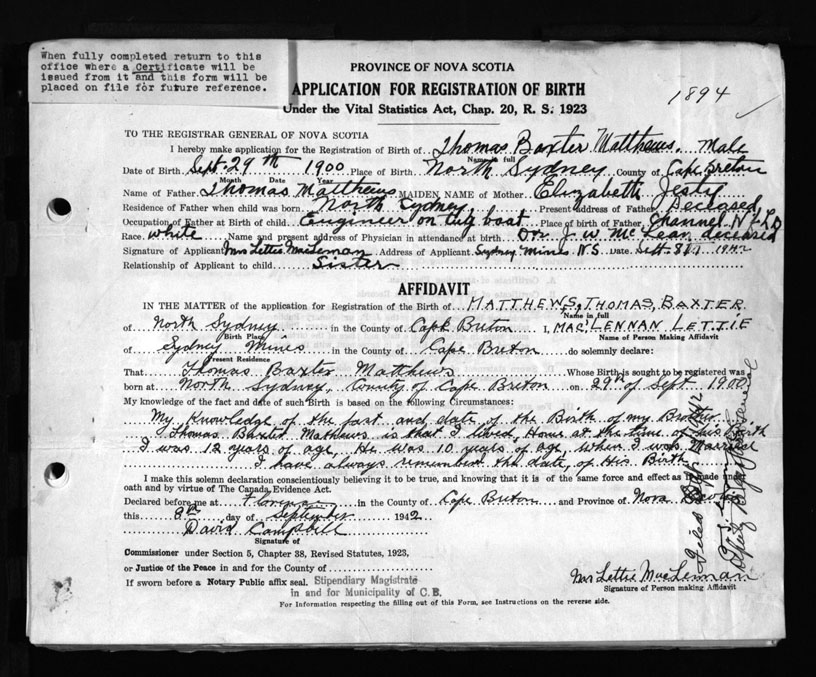 When fully completed return to this
office where a Certificate will be
issued from it and this form will be
placed on file for future reference.
PROVINCE OF NOVA SCOTIA
APPLICATION FOR REGISTRATION OF BIRTH
Under the Vital Statistics Act, Chap. 20, R. S. 1923
1894
TO THE REGISTRAR GENERAL OF NOVA SCOTIA
I hereby make application for the Registration of Birth of Thomas Baxter Matthews. Male
Name in full
Date of Birth Sept. 29th 1900 Place of Birth North Sydney County of Cape Breton
Month Date Year
Name of Father Thomas Matthews MAIDEN NAME of Mother Elizabeth
Residence of Father when child was born North Sydney Present address of Father Deceased
Occupation of Father at Birth of child Engineer on tug boat Place of birth of Father Channel Nfld
Race white Name and present address of Physician in attendance at birth Dr J. W McLean deceased
Signature of Applicant Mrs Lettie MacLennan Address of Applicant Sydney Mines N.S. Date Sept. 1942
Relationship of Applicant to child Sister
AFFIDAVIT
IN THE MATTER of the application for Registration of the Birth of MATTHEWS, THOMAS, BAXTER
Name in full
of North Sydney in the County of Cape Breton I, MAC'LENNAN LETTIE
Birth Place Name of Person Making Affidavit
of Sydney Mines in the County of Cape Breton do solemnly declare:
Present Residence
That Thomas Baxter Matthews Whose Birth is sought to be registered was
born at North Sydney, County of Cape Breton on 29th of Sept. 1900
My knowledge of the fact and date of such Birth is based on the following Circumstances:
My Knowledge of the fast and date of the Birth of my Brother
Thomas Baxter Mathews is that I lived, Home at the time of his Birth
I was 12 years of age, He was 10 years of age, when I was Married
I have always remembered the date, of His Birth
I make this solemn declaration conscientiously believing it to be true, and knowing that it is of the same force and effect as if made under
oath and by virtue of The Canada Evidence Act.
Declared before me at Florence in the County of Cape Breton and Province of Nova Scotia
this 8th day of September 1942
David Campbell
Signature of
Commissioner under Section 5, Chapter 38, Revised Statutes, 1923,
or Justice of the Peace in and for the County of
If sworn before a Notary Public affix seal. Stipendiary Magistrate
in and for Municipality of C. B.
Mrs Lettie MacLennan
Signature of Person making Affidavit
For Information respecting the filling out of this Form, see Instructions on the reverse side.
Filed
Deputy Registrar General